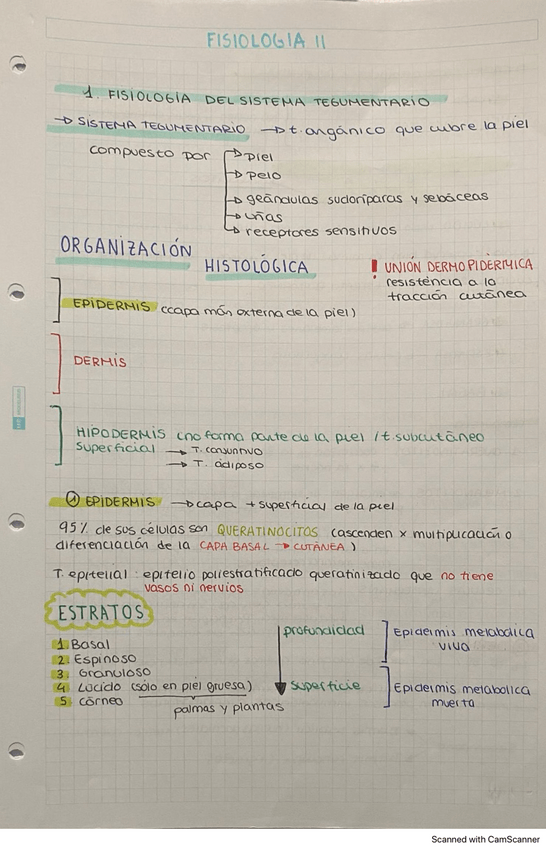 FISIOLOGIA II
1. FISIOLOGÍA DEL SISTEMA TEGUMENTARIO
→ SISTEMA TEGUMENTARIO → t. orgánico que cubre la piel
compuesto por → piel
→ pelo
→ geándulas sudoríparas y sebáceas
→ uñas
→ receptores sensitivos
ORGANIZACIÓN
HISTOLÓGICA
! UNIÓN DERMOPIDÉRMICA
resistencia a la
tracción cutánea
EPIDERMIS (capa más externa de la piel)
DERMIS
HIPODERMIS (no forma parte de la piel / t. subcutáneo
superficial → T. conjuntivo
→ T. adiposo
1 EPIDERMIS → capa + superficial de la piel
95% de sus células son QUERATINOCITOS (ascienden x multiplicación o
diferenciación de la CAPA BASAL → CUTÁNEA)
T. epitelial : epitelio poliestratificado queratinizado que no tiene
vasos ni nervios
ESTRATOS
1 Basal
2 Espinoso
3 Granuloso
4 Lúcido (sólo en piel gruesa)
5 córneo
palmas y plantas
profundidad
superficie
Epidermis metabólica
viva
Epidermis metabólica
muerta
Scanned with CamScanner